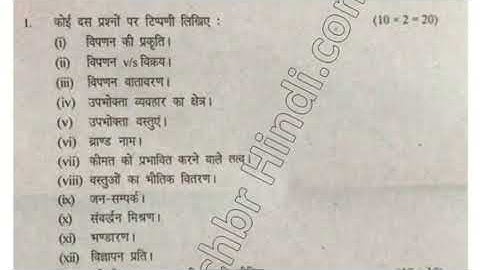 1. कोई दस प्रश्नों पर टिप्पणी लिखिए : (10 × 2 = 20)
(i) विपणन की प्रकृति।
(ii) विपणन v/s विक्रय।
(iii) विपणन वातावरण।
(iv) उपभोक्ता व्यवहार का क्षेत्र।
(v) उपभोक्ता वस्तुएं।
(vi) ब्राण्ड नाम।
(vii) कीमत को प्रभावित करने वाले तत्व।
(viii) वस्तुओं का भौतिक वितरण।
(ix) जन-सम्पर्क।
(x) संवर्द्धन मिश्रण।
(xi) भण्डारण।
(xii) विज्ञापन प्रति।
shbr Hindi.com